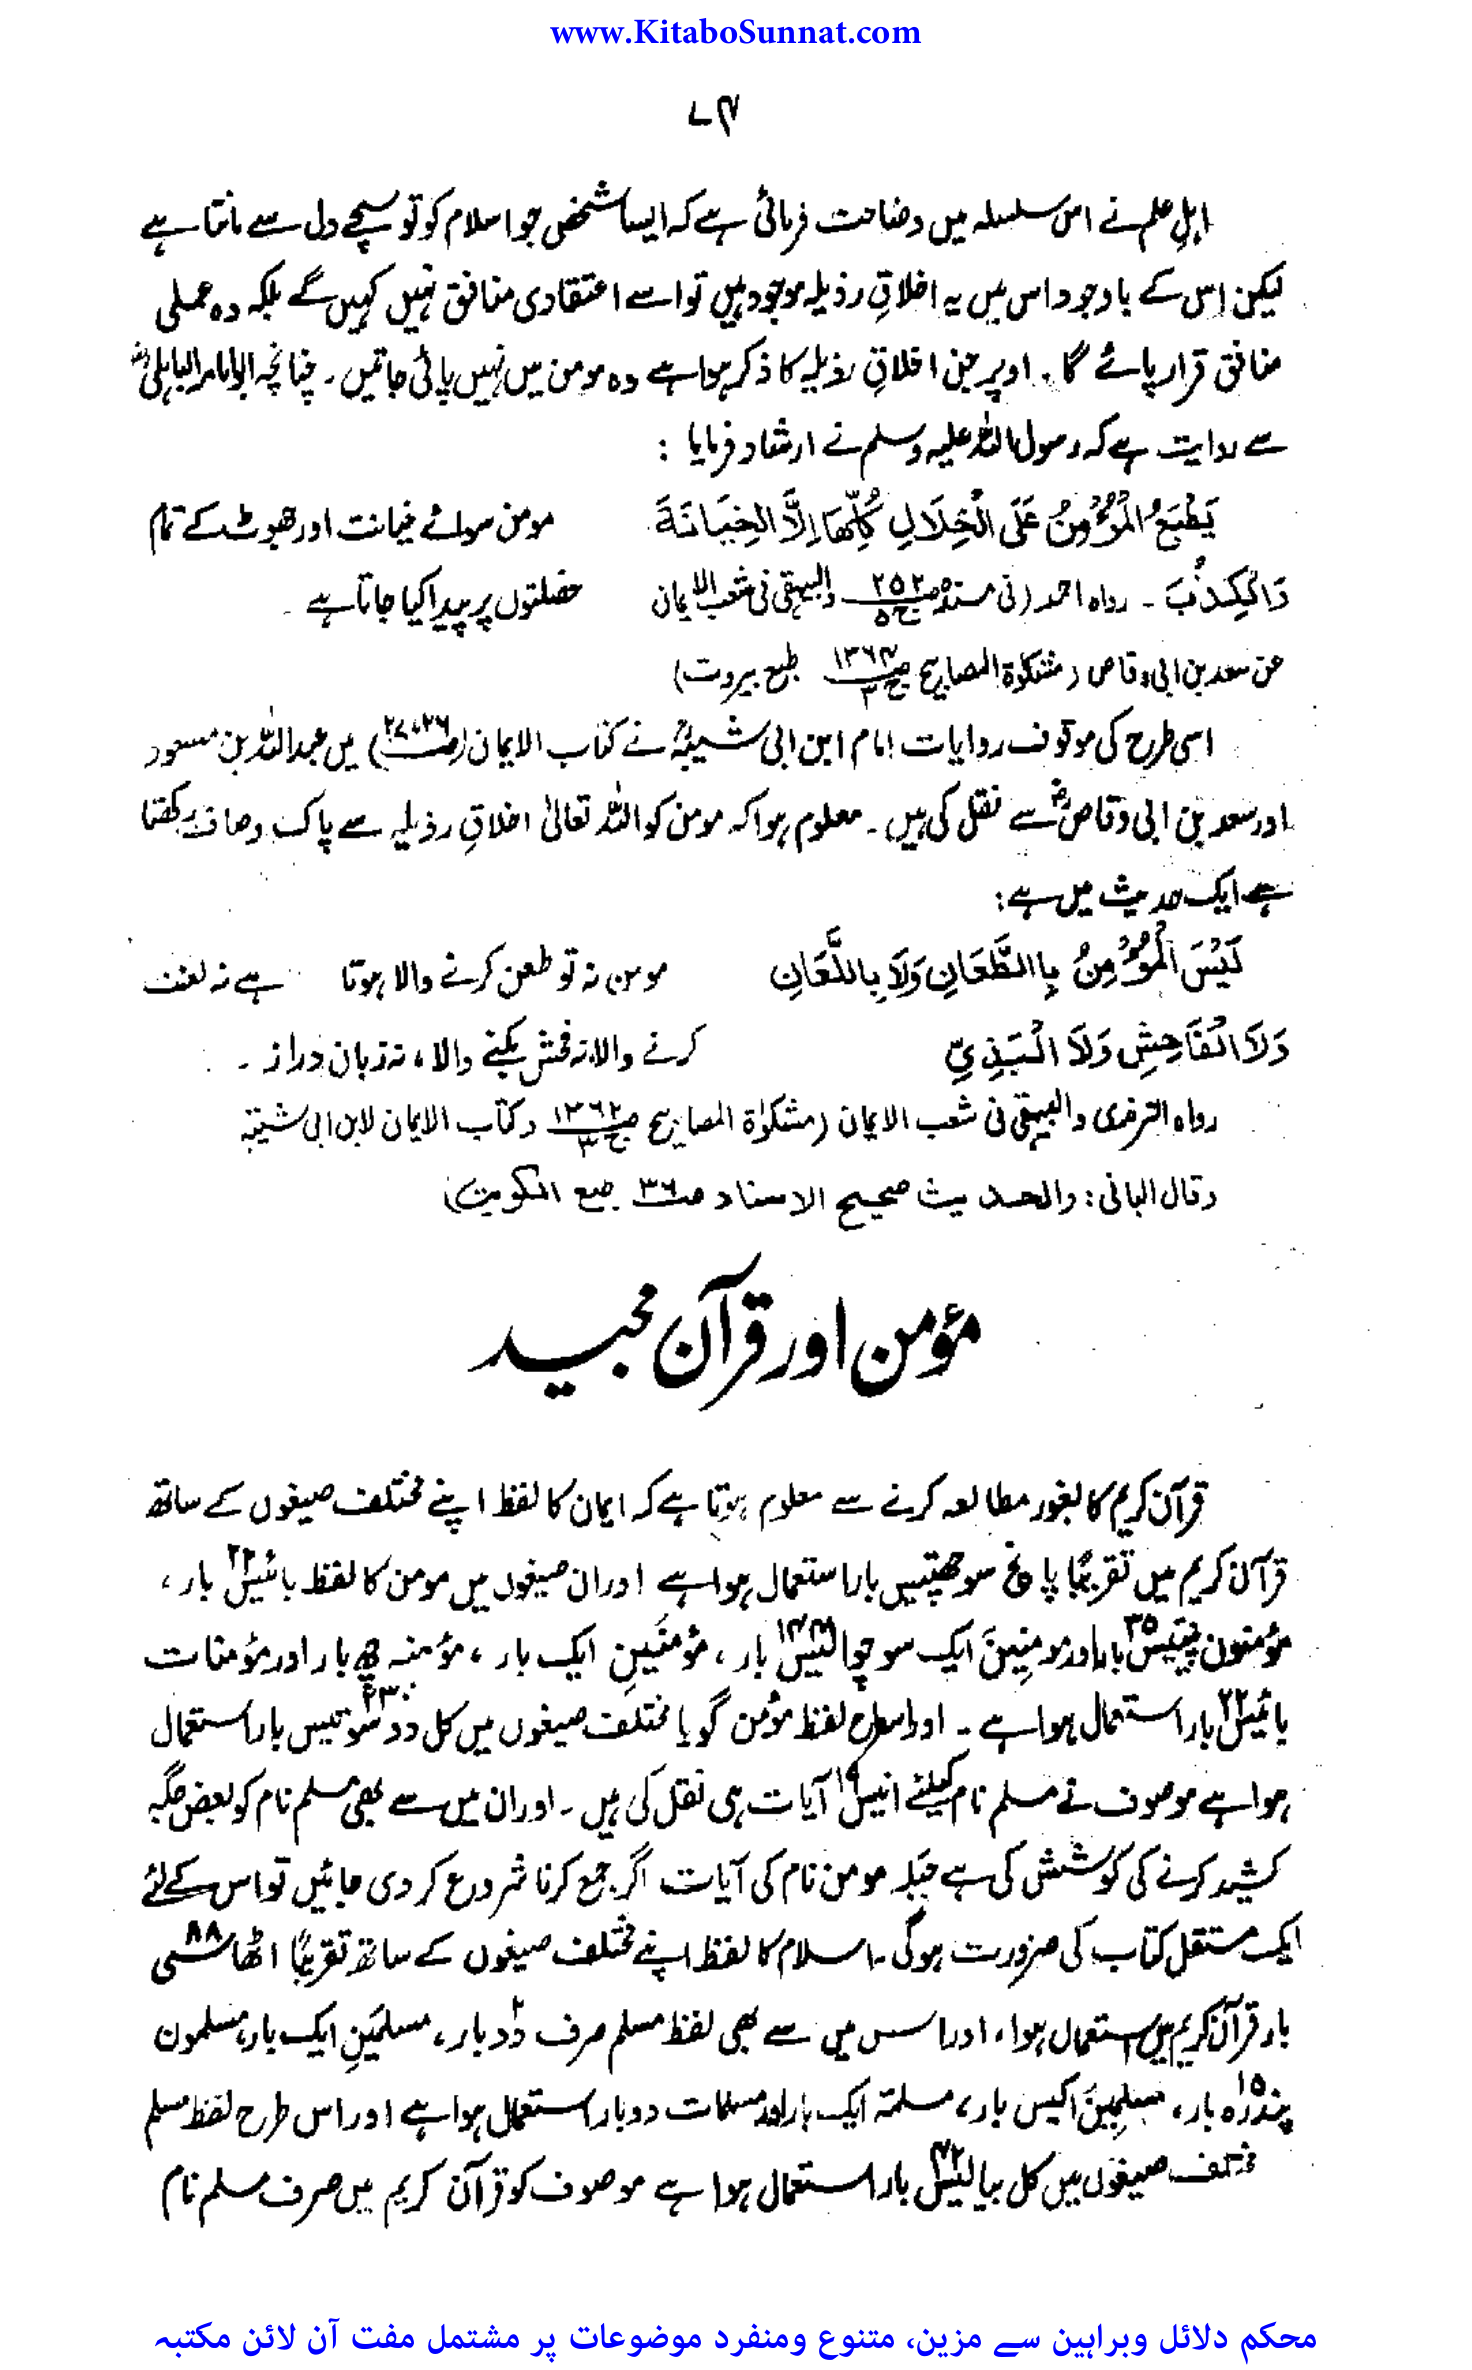 www.KitaboSunnat.com
۷۴
اہلِ علم نے اس سلسلہ میں وضاحت فرمائی ہے کہ ایسا شخص جو اسلام کو تو سچے دل سے مانتا ہے
لیکن اِس کے باوجود اس میں یہ اخلاقِ رذیلہ موجود ہیں تو اسے اعتقادی منافق نہیں کہیں گے بلکہ وہ عملی
منافق قرار پائے گا۔ اوپر جن اخلاقِ رذیلہ کا ذکر ہوا ہے وہ مومن میں نہیں پائی جاتیں۔ چنانچہ ابوامامہ الباہلیؓ
سے روایت ہے کہ رسول اللہ علیہ وسلم نے ارشاد فرمایا :
يَطْبَعُ الْمُؤْمِنُ عَلَى الْخِلَالِ كُلِّهَا اِلَّا الخِيَانَةَ مومن سوائے خیانت اور جھوٹ کے تمام
وَالْكِذْبَ ۔ رواہ احمد (فی مسندہ ص۲۵۲ ج۵ والبیہقی فی شعب الایمان خصلتوں پر پیدا کیا جاتا ہے ۔
عن سعد بن ابی وقاص (مشکوٰۃ المصابیح ص۱۳۶۴ ج۳ طبع بیروت)
اسی طرح کی موقوف روایات امام ابن ابی شیبہؒ نے کتاب الایمان (ص۲۶،۲۷) میں عبداللہ بن مسعود
اور سعد بن ابی وقاصؓ سے نقل کی ہیں۔ معلوم ہوا کہ مومن کو اللہ تعالیٰ اخلاقِ رذیلہ سے پاک وصاف رکھتا
ہے ایک حدیث میں ہے:
لَيْسَ الْمُؤْمِنُ بِالطَّعَانِ وَلَا بِاللَّعَانِ مومن نہ تو طعن کرنے والا ہوتا ہے نہ لعنت
وَلَا الْفَاحِشِ وَلَا الْبَذِيِّ کرنے والا نہ فحش بکنے والا، نہ زبان دراز ۔
رواہ الترمذی والبیہقی فی شعب الایمان (مشکوٰۃ المصابیح ص۱۳۶۲ ج۳ وکتاب الایمان لابن ابی شیبۃ
وقال البانی: والحدیث صحیح الاسناد ص۳۶ طبع الکویت)
مؤمن اور قرآن مجید
قرآن کریم کا بغور مطالعہ کرنے سے معلوم ہوتا ہے کہ ایمان کا لفظ اپنے مختلف صیغوں کے ساتھ
قرآن کریم میں تقریباً پانچ سو چھتیس بار استعمال ہوا ہے اور ان صیغوں میں مومن کا لفظ بائیس۲۲ بار ،
مؤمنون پینتیس۳۵ بار اور مومنِینَ ایک سو چوالیس۱۴۴ بار ، مؤمنَینِ ایک بار ، مؤمنہ چھ بار اور مؤمنات
بائیس۲۲ بار استعمال ہوا ہے ۔ اور اسطرح لفظ مؤمن گویا مختلف صیغوں میں کل دو سو تیس۲۳۰ بار استعمال
ہوا ہے موصوف نے مسلم نام کیلئے انیس۱۹ آیات ہی نقل کی ہیں ۔ اور ان میں سے بھی مسلم نام کو بعض جگہ
کشید کرنے کی کوشش کی ہے جبکہ مومن نام کی آیات اگر جمع کرنا شروع کر دی جائیں تو اس کے لئے
ایک مستقل کتاب کی ضرورت ہوگی ۔ اسلام کا لفظ اپنے مختلف صیغوں کے ساتھ تقریباً اٹھاسی۸۸
بار قرآن کریم میں استعمال ہوا، اور اس میں سے بھی لفظ مسلم صرف دو۲ بار، مسلمَینِ ایک بار، مسلمون
پندرہ۱۵ بار ، مسلمِینَ اکیس بار، مسلمۃ ایک بار اور مسلمات دو بار استعمال ہوا ہے اور اس طرح لفظ مسلم
مختلف صیغوں میں کل بیالیس۴۲ بار استعمال ہوا ہے موصوف کو قرآن کریم میں صرف مسلم نام
محکم دلائل وبراہین سے مزین، متنوع ومنفرد موضوعات پر مشتمل مفت آن لائن مکتبہ